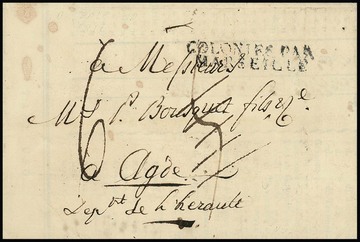 COLONIES PAR
MARSEILLE
a Messieurs
Bousquet fils
6
a Agde
Dep.nt de L'herault